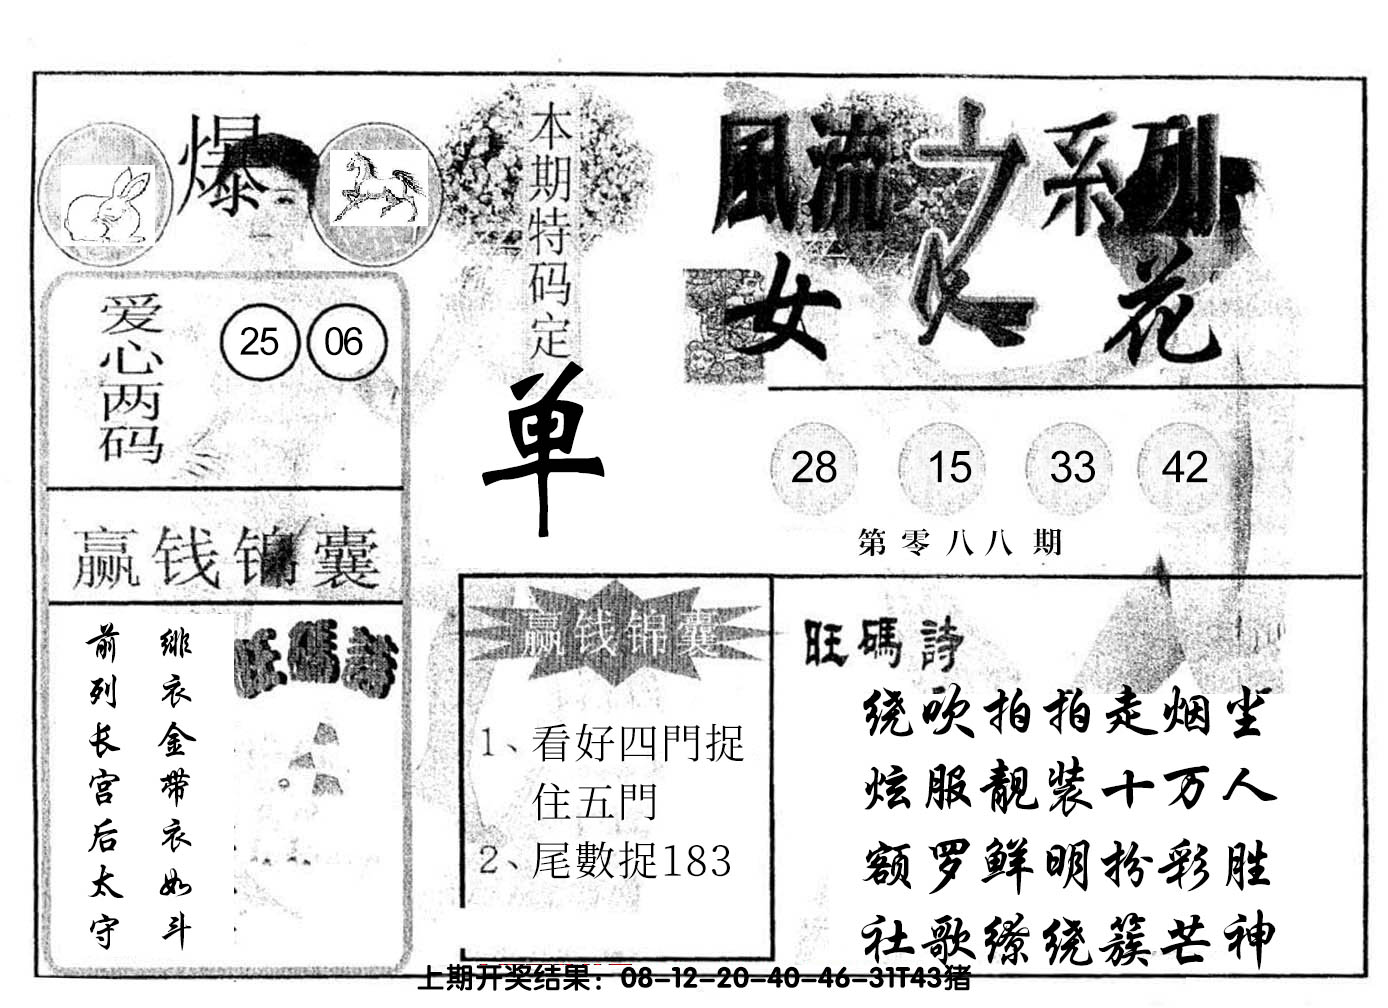 爆
本期特码定
单
風流之系列
女人花
爱心两码
25 06
28 15 33 42
第零八八期
赢钱锦囊
前列长宫后太守
绯衣金带衣如斗
旺碼詩
赢钱锦囊
1、看好四門捉
住五門
2、尾數捉183
旺碼詩
绕吹拍拍走烟尘
炫服靓装十万人
额罗鲜明扮彩胜
社歌缭绕簇芒神
上期开奖结果：08-12-20-40-46-31T43猪